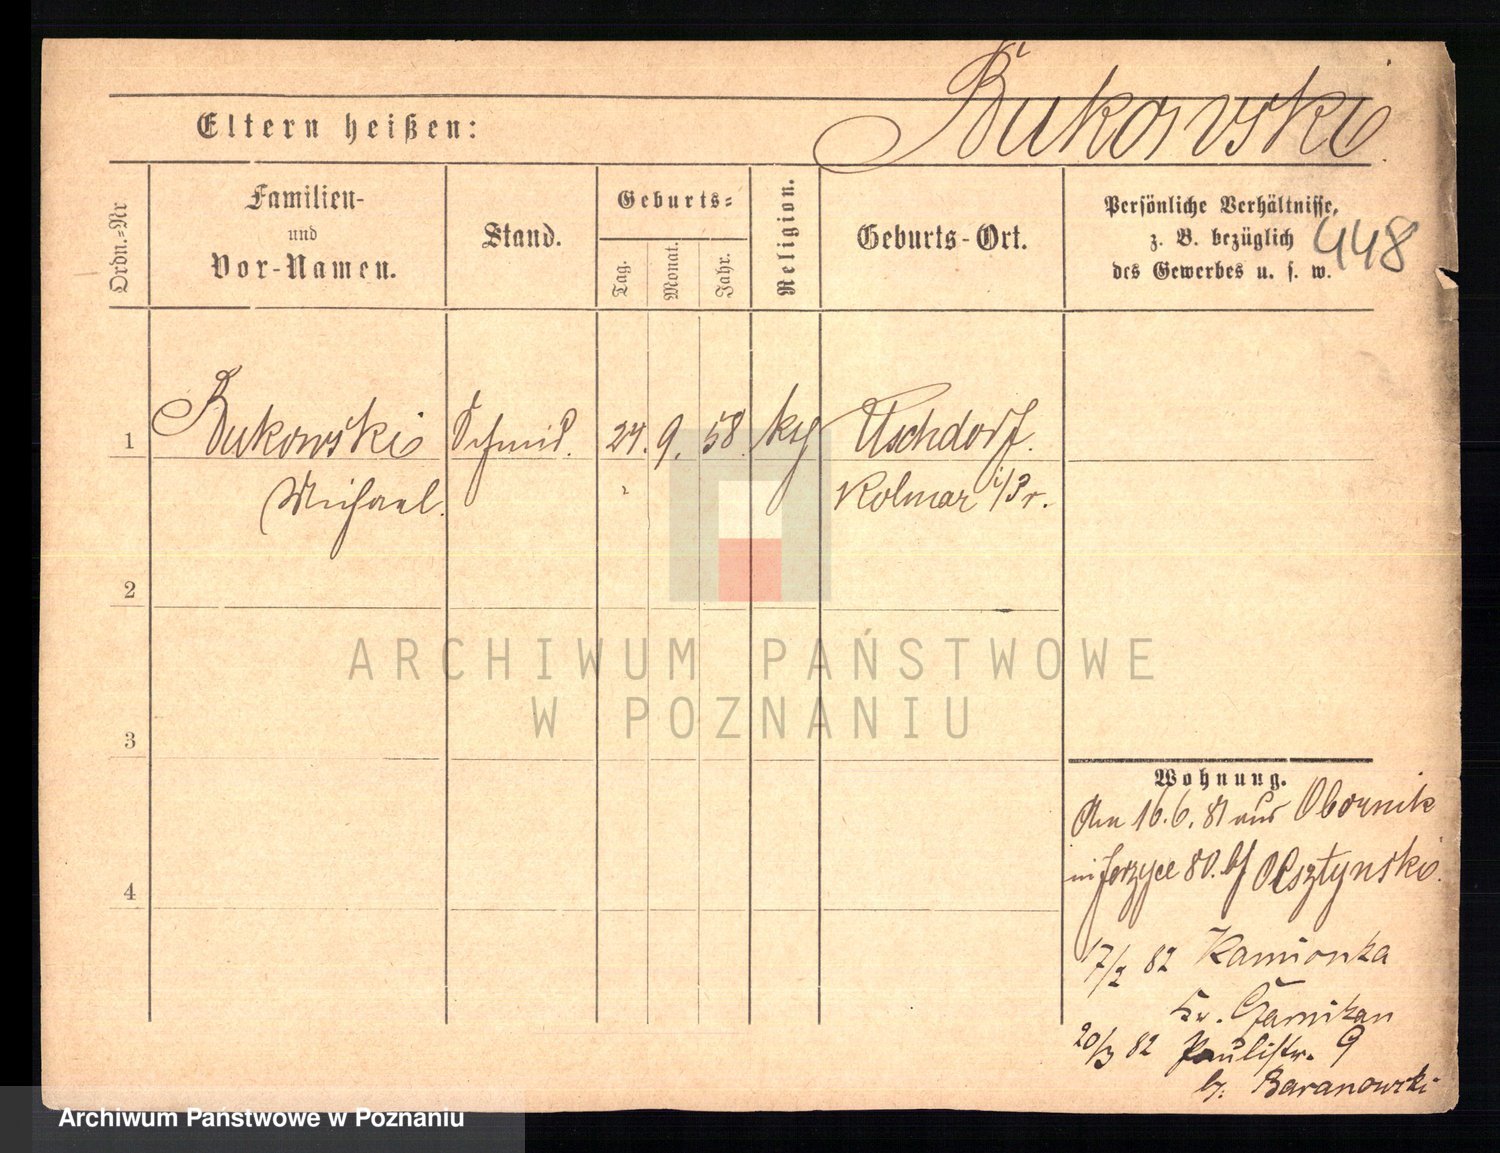 Bukowski
Eltern heißen:
Ordn.-Nr
Familien-
und
Vor-Namen.
Stand.
Geburts-
Tag.
Monat.
Jahr.
Religion.
Geburts-Ort.
Persönliche Verhältnisse,
z. B. bezüglich
des Gewerbes u. s. w.
448
1 Bukowski Schmid. 24. 9. 58. kth Uschdorf.
Michael. Kolmar i/Pr.
2
3
4
Wohnung.
Am 16.6.81 aus Obornik
in Jerzyce 80. bei Olsztynski.
17/2 82 Kamionka
Kr. Czarnikau
20/3 82 Paulistr. 9
b. Baranowski
ARCHIWUM PAŃSTWOWE
W POZNANIU
Archiwum Państwowe w Poznaniu